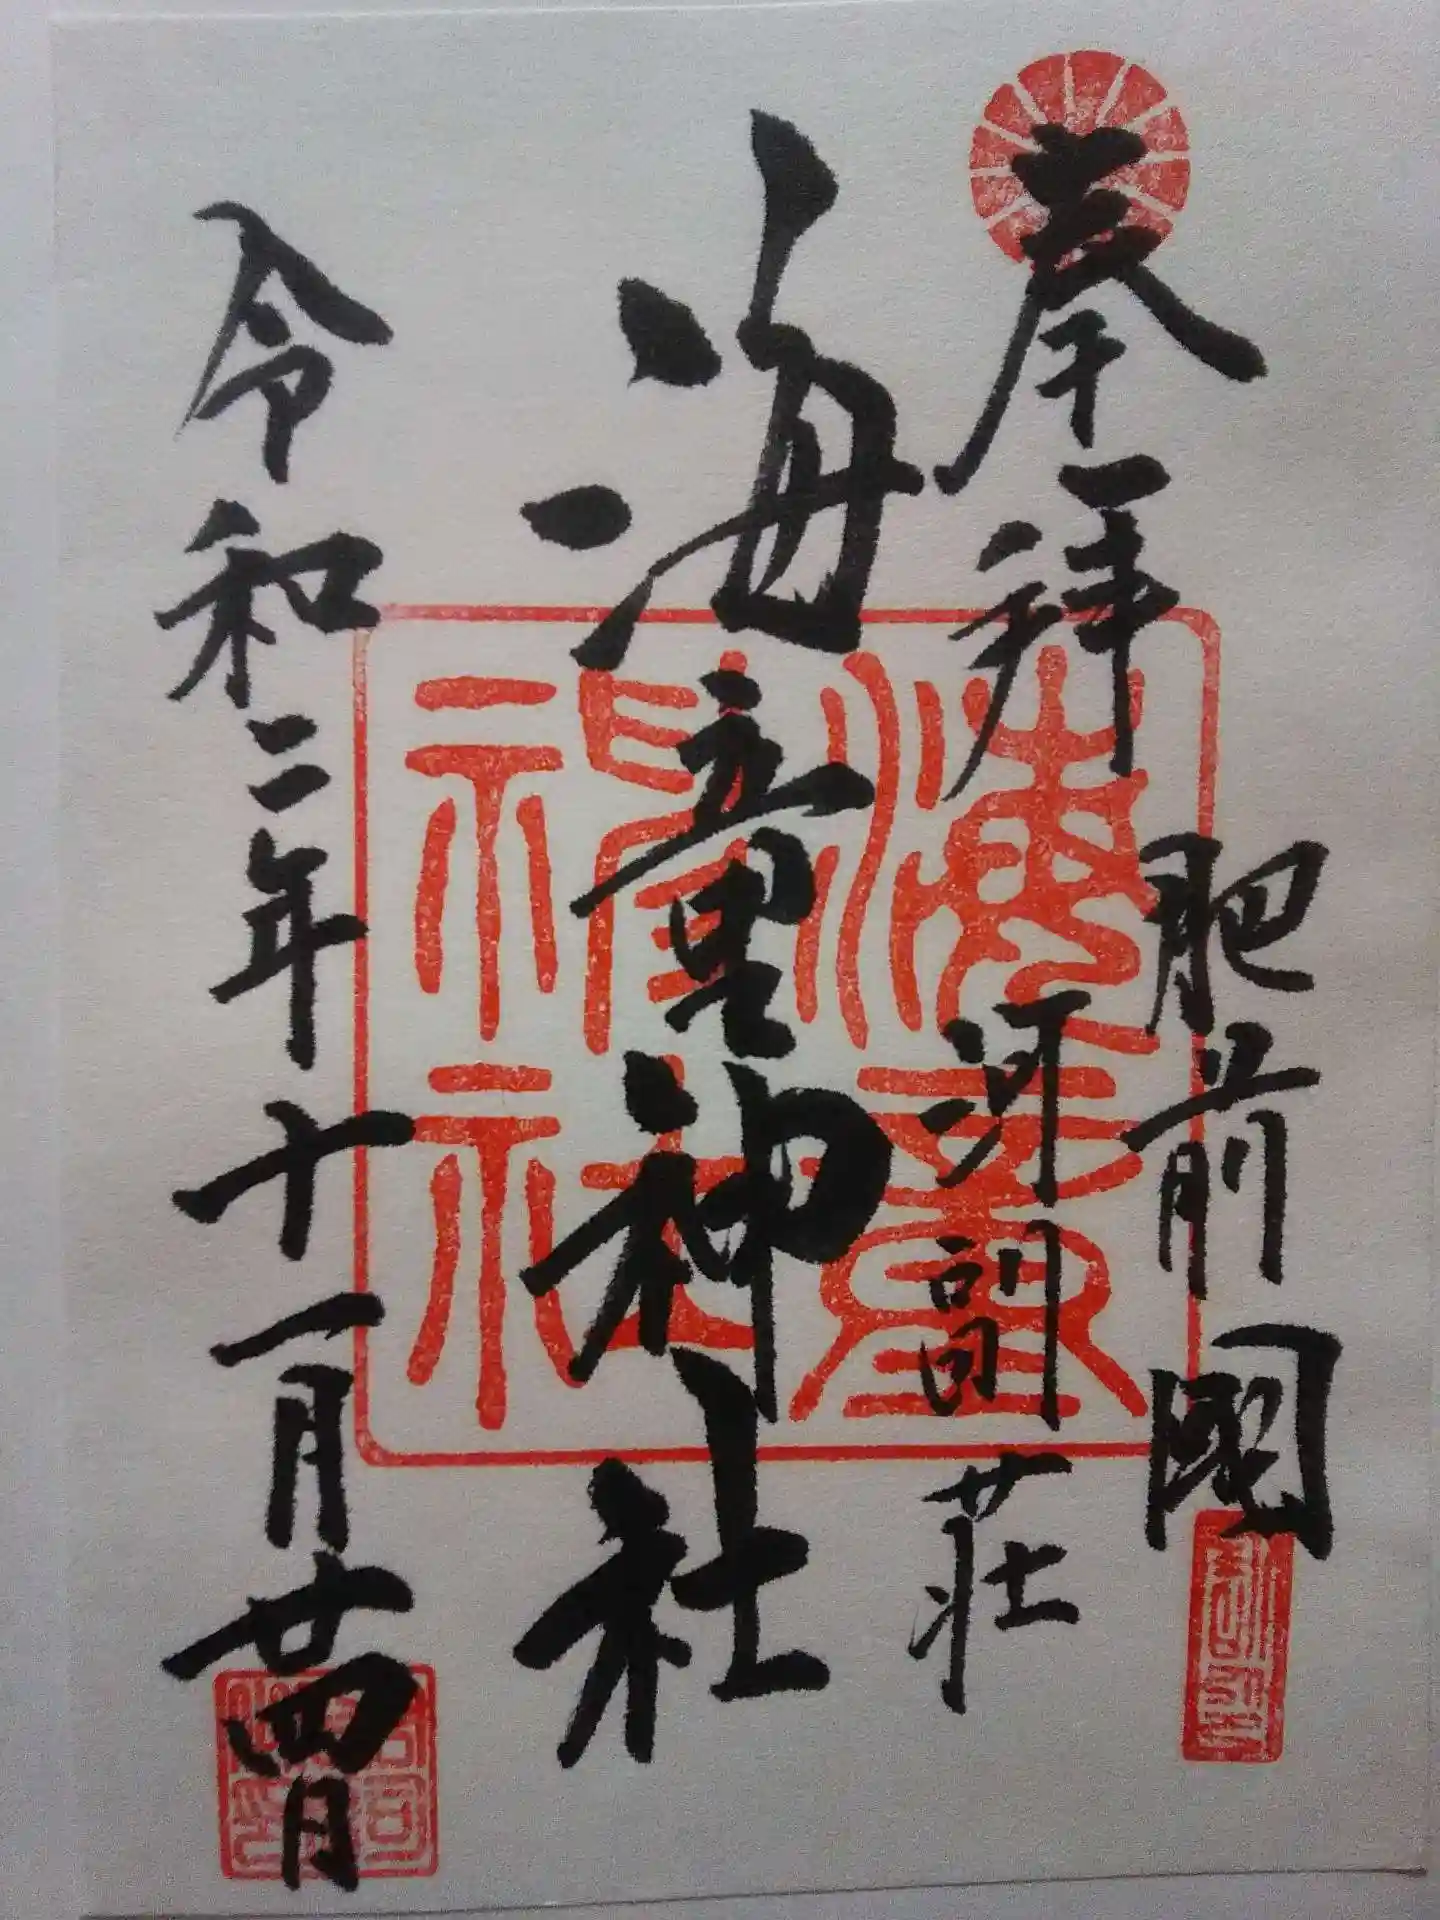 奉拝
肥前國
河副荘
海童神社
令和二年十一月廿四日
海童神社